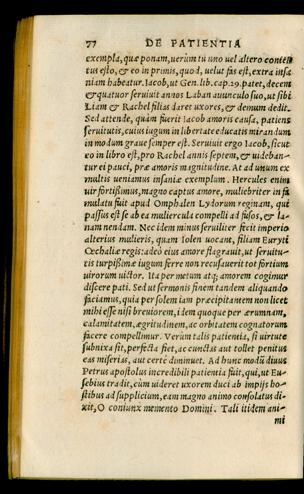 77 DE PATIENTIA
exempla, quæ ponam, uerùm tu uno uel altero conten
tus esto, & eo in primis, quod, uelut fas est, extra insa
niam habeatur. Iacob, ut Gen. lib. cap. 29. patet, decem
& quatuor seruiuit annos Laban auunculo suo, ut sibi
Liam & Rachel filias daret uxores, & demum dedit.
Sed attende, quàm fuerit Iacob amoris causa, patiens
seruitutis, cuius iugum in libertate educatis mirandum
in modum graue semper est. Seruiuit ergo Iacob, sicut
eo in libro est, pro Rachel annis septem, & uideban-
tur ei pauci, præ amoris magnitudine. At ad unum ex
multis ueniamus insaniæ exemplum. Hercules enim
uir fortissimus, magno captus amore, muliebriter in fa
mulatu fuit apud Omphalen Lydorum reginam, qui
passus est se ab ea muliercula compelli ad fusos, & la-
nam nendam. Nec idem minus seruiliter fecit imperio
alterius mulieris, quam Iolen uocant, filiam Euryti
Oechaliæ regis: adeò eius amore flagrauit, ut seruitu-
tis turpissimæ iugum ferre non recusauerit tot fortium
uirorum uictor. Ita per metum atq; amorem cogimur
discere pati. Sed ut sermonis finem tandem aliquando
faciamus, quia per solem iam præcipitantem non licet
mihi esse nisi breuiorem, idem quoque per ærumnam,
calamitatem, ægritudinem, ac orbitatem cognatorum
facere compellimur. Verùm talis patientia, si uirtute
subnixa sit, perfecta fiet, ac cunctas aut tollet penitus
eas miserias, aut certè diminuet. Ad hunc modũ diuus
Petrus apostolus incredibili patientia fuit, qui, ut Eu-
sebius tradit, cùm uideret uxorem duci ab impijs ho-
stibus ad supplicium, eam magno animo consolatus di-
xit, O coniunx memento Domini. Tali itidem ani-
mi